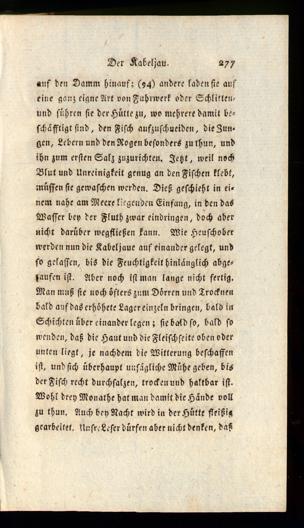 Der Kabeljau. 277
auf den Damm hinauf: (94) andere laden sie auf
eine ganz eigne Art von Fuhrwerk oder Schlitten,
und führen sie der Hütte zu, wo mehrere damit be-
schäfftigt sind, den Fisch aufzuschneiden, die Zun-
gen, Lebern und den Rogen besonders zu thun, und
ihn zum ersten Salz zuzurichten. Jetzt, weil noch
Blut und Unreinigkeit genug an den Fischen klebt,
müssen sie gewaschen werden. Dieß geschieht in ei-
nem nahe am Meere liegenden Einfang, in den das
Wasser bey der Fluth zwar eindringen, doch aber
nicht darüber wegfließen kann. Wie Heuschober
werden nun die Kabeljaue auf einander gelegt, und
so gelassen, bis die Feuchtigkeit hinlänglich abge-
laufen ist. Aber noch ist man lange nicht fertig.
Man muß sie noch öfters zum Dörren und Trocknen
bald auf das erhöhete Lager einzeln bringen, bald in
Schichten über einander legen; sie bald so, bald so
wenden, daß die Haut und die Fleischseite oben oder
unten liegt, je nachdem die Witterung beschaffen
ist, und sich überhaupt unsägliche Mühe geben, bis
der Fisch recht durchsalzen, trocken und haltbar ist.
Wohl drey Monathe hat man damit die Hände voll
zu thun. Auch bey Nacht wird in der Hütte fleißig
gearbeitet. Unsre Leser dürfen aber nicht denken, daß